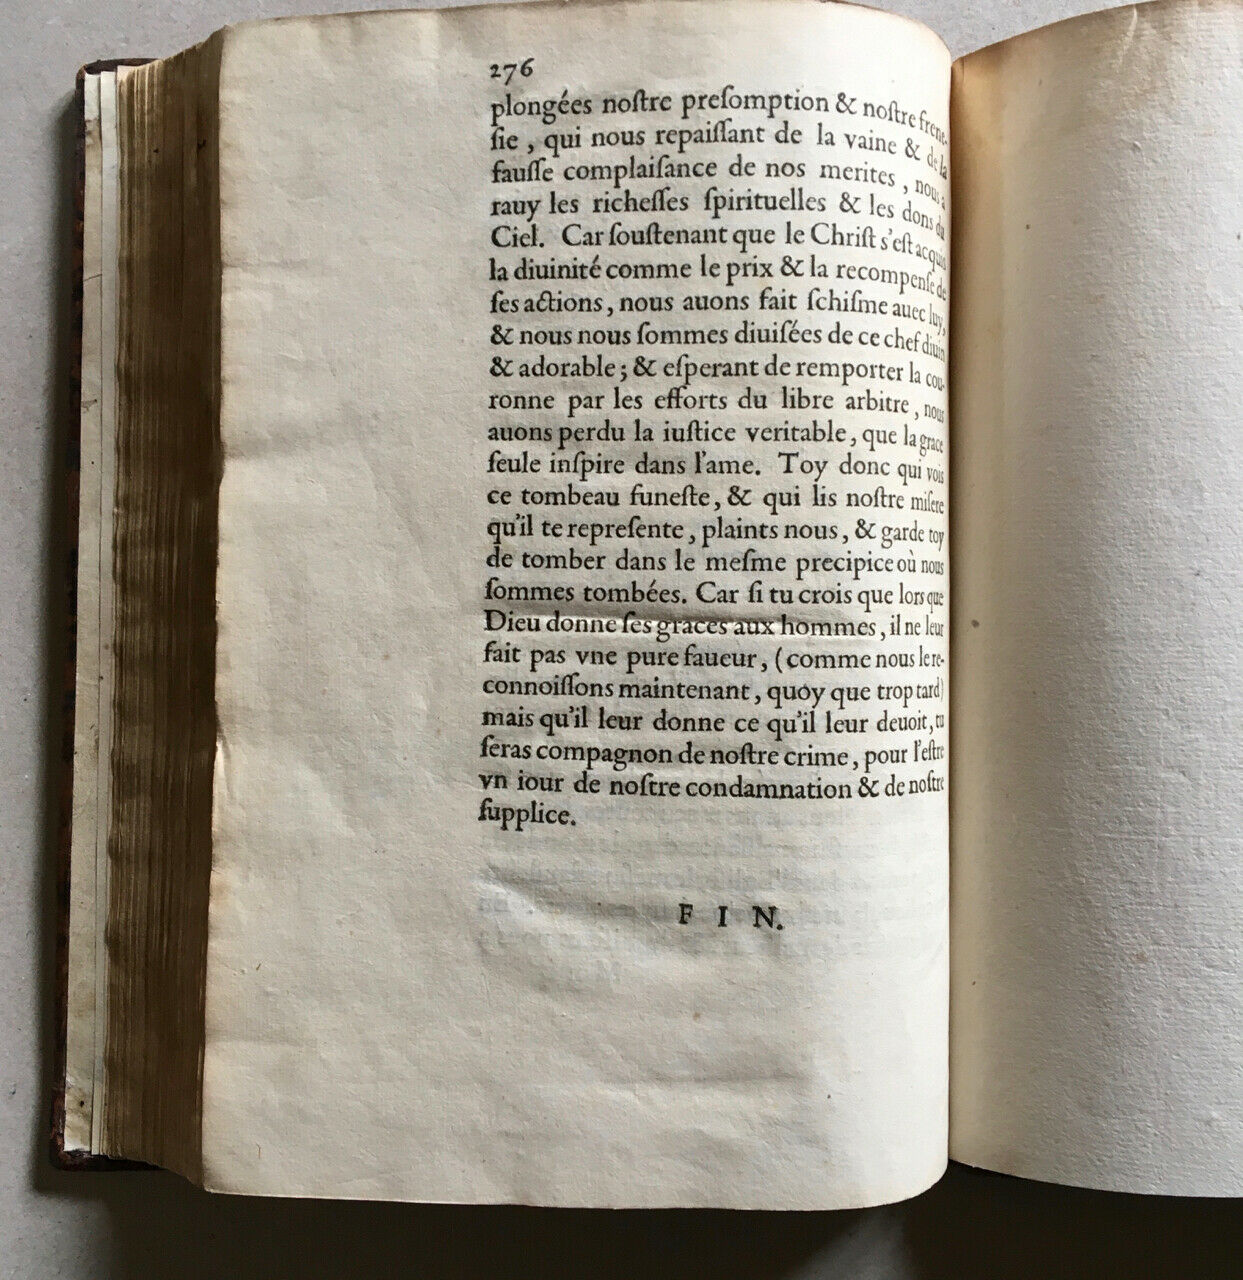 276
plongées noſtre preſomption & noſtre frene-
ſie, qui nous repaiſſant de la vaine & de la
fauſſe complaiſance de nos merites, nous a
rauy les richeſſes ſpirituelles & les dons du
Ciel. Car ſouſtenant que le Chriſt s'eſt acquis
la diuinité comme le prix & la recompenſe de
ſes actions, nous auons fait ſchiſme auec luy,
& nous nous ſommes diuiſées de ce chef diuin
& adorable; & eſperant de remporter la cou-
ronne par les efforts du libre arbitre, nous
auons perdu la iuſtice veritable, que la grace
ſeule inſpire dans l'ame. Toy donc qui vois
ce tombeau funeſte, & qui lis noſtre miſere
qu'il te repreſente, plaints nous, & garde toy
de tomber dans le meſme precipice où nous
ſommes tombées. Car ſi tu crois que lors que
Dieu donne ſes graces aux hommes, il ne leur
fait pas vne pure faueur, (comme nous le re-
connoiſſons maintenant, quoy que trop tard)
mais qu'il leur donne ce qu'il leur deuoit, tu
ſeras compagnon de noſtre crime, pour l'eſtre
vn iour de noſtre condamnation & de noſtre
ſupplice.
FIN.